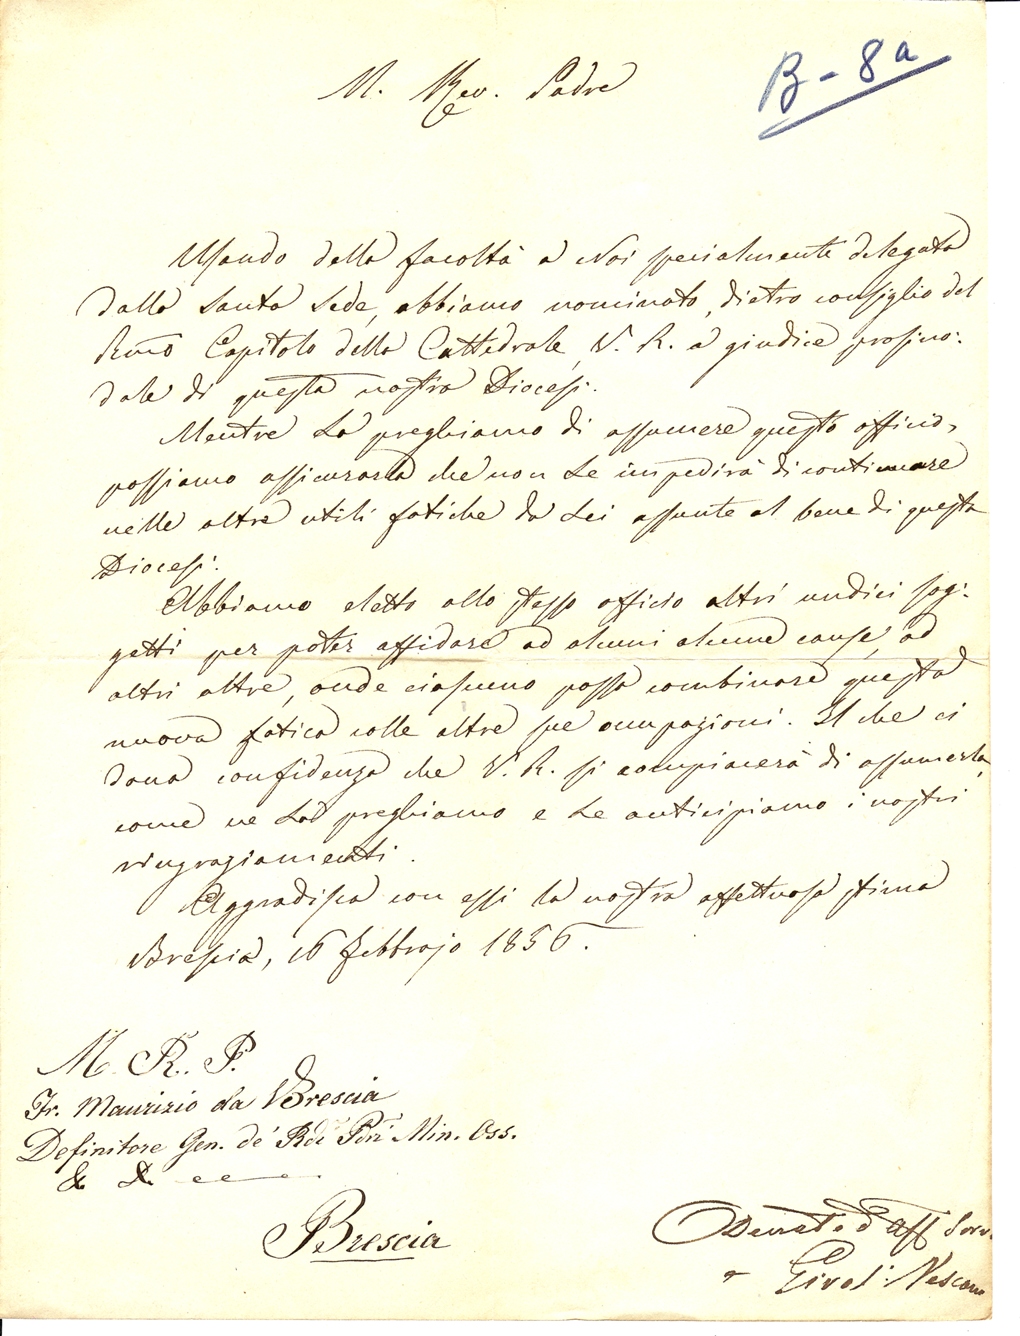 B - 8a
M. Rev. Padre
Usando della facoltà a Noi specialmente delegata
dalla Santa Sede, abbiamo nominato, dietro consiglio del
Rmo Capitolo della Cattedrale, V. R. a giudice prosino-
dale di questa nostra Diocesi.
Mentre La preghiamo di assumere questo officio,
possiamo assicurarla che non Le impedirà di continuare
nelle altre utili fatiche da Lei assunte al bene di questa
Diocesi.
Abbiamo eletto allo stesso officio altri undici sog-
getti per poter affidare ad alcuni alcune cause, ad
altri altre, onde ciascuno possa combinare questa
nuova fatica colle altre sue occupazioni. Il che ci
dona confidenza che V. R. si compiacerà di assumerla,
come ne La preghiamo e Le anticipiamo i nostri
ringraziamenti.
Aggradisca con essi la nostra affettuosa stima
Brescia, 16 Febbrajo 1856.
M. R. P.
Fr. Maurizio da Brescia
Definitore Gen. de' Rdi Pdri Min. Oss.
& &
Brescia
Devot. ed Aff Serv
+ Girol: Vescovo